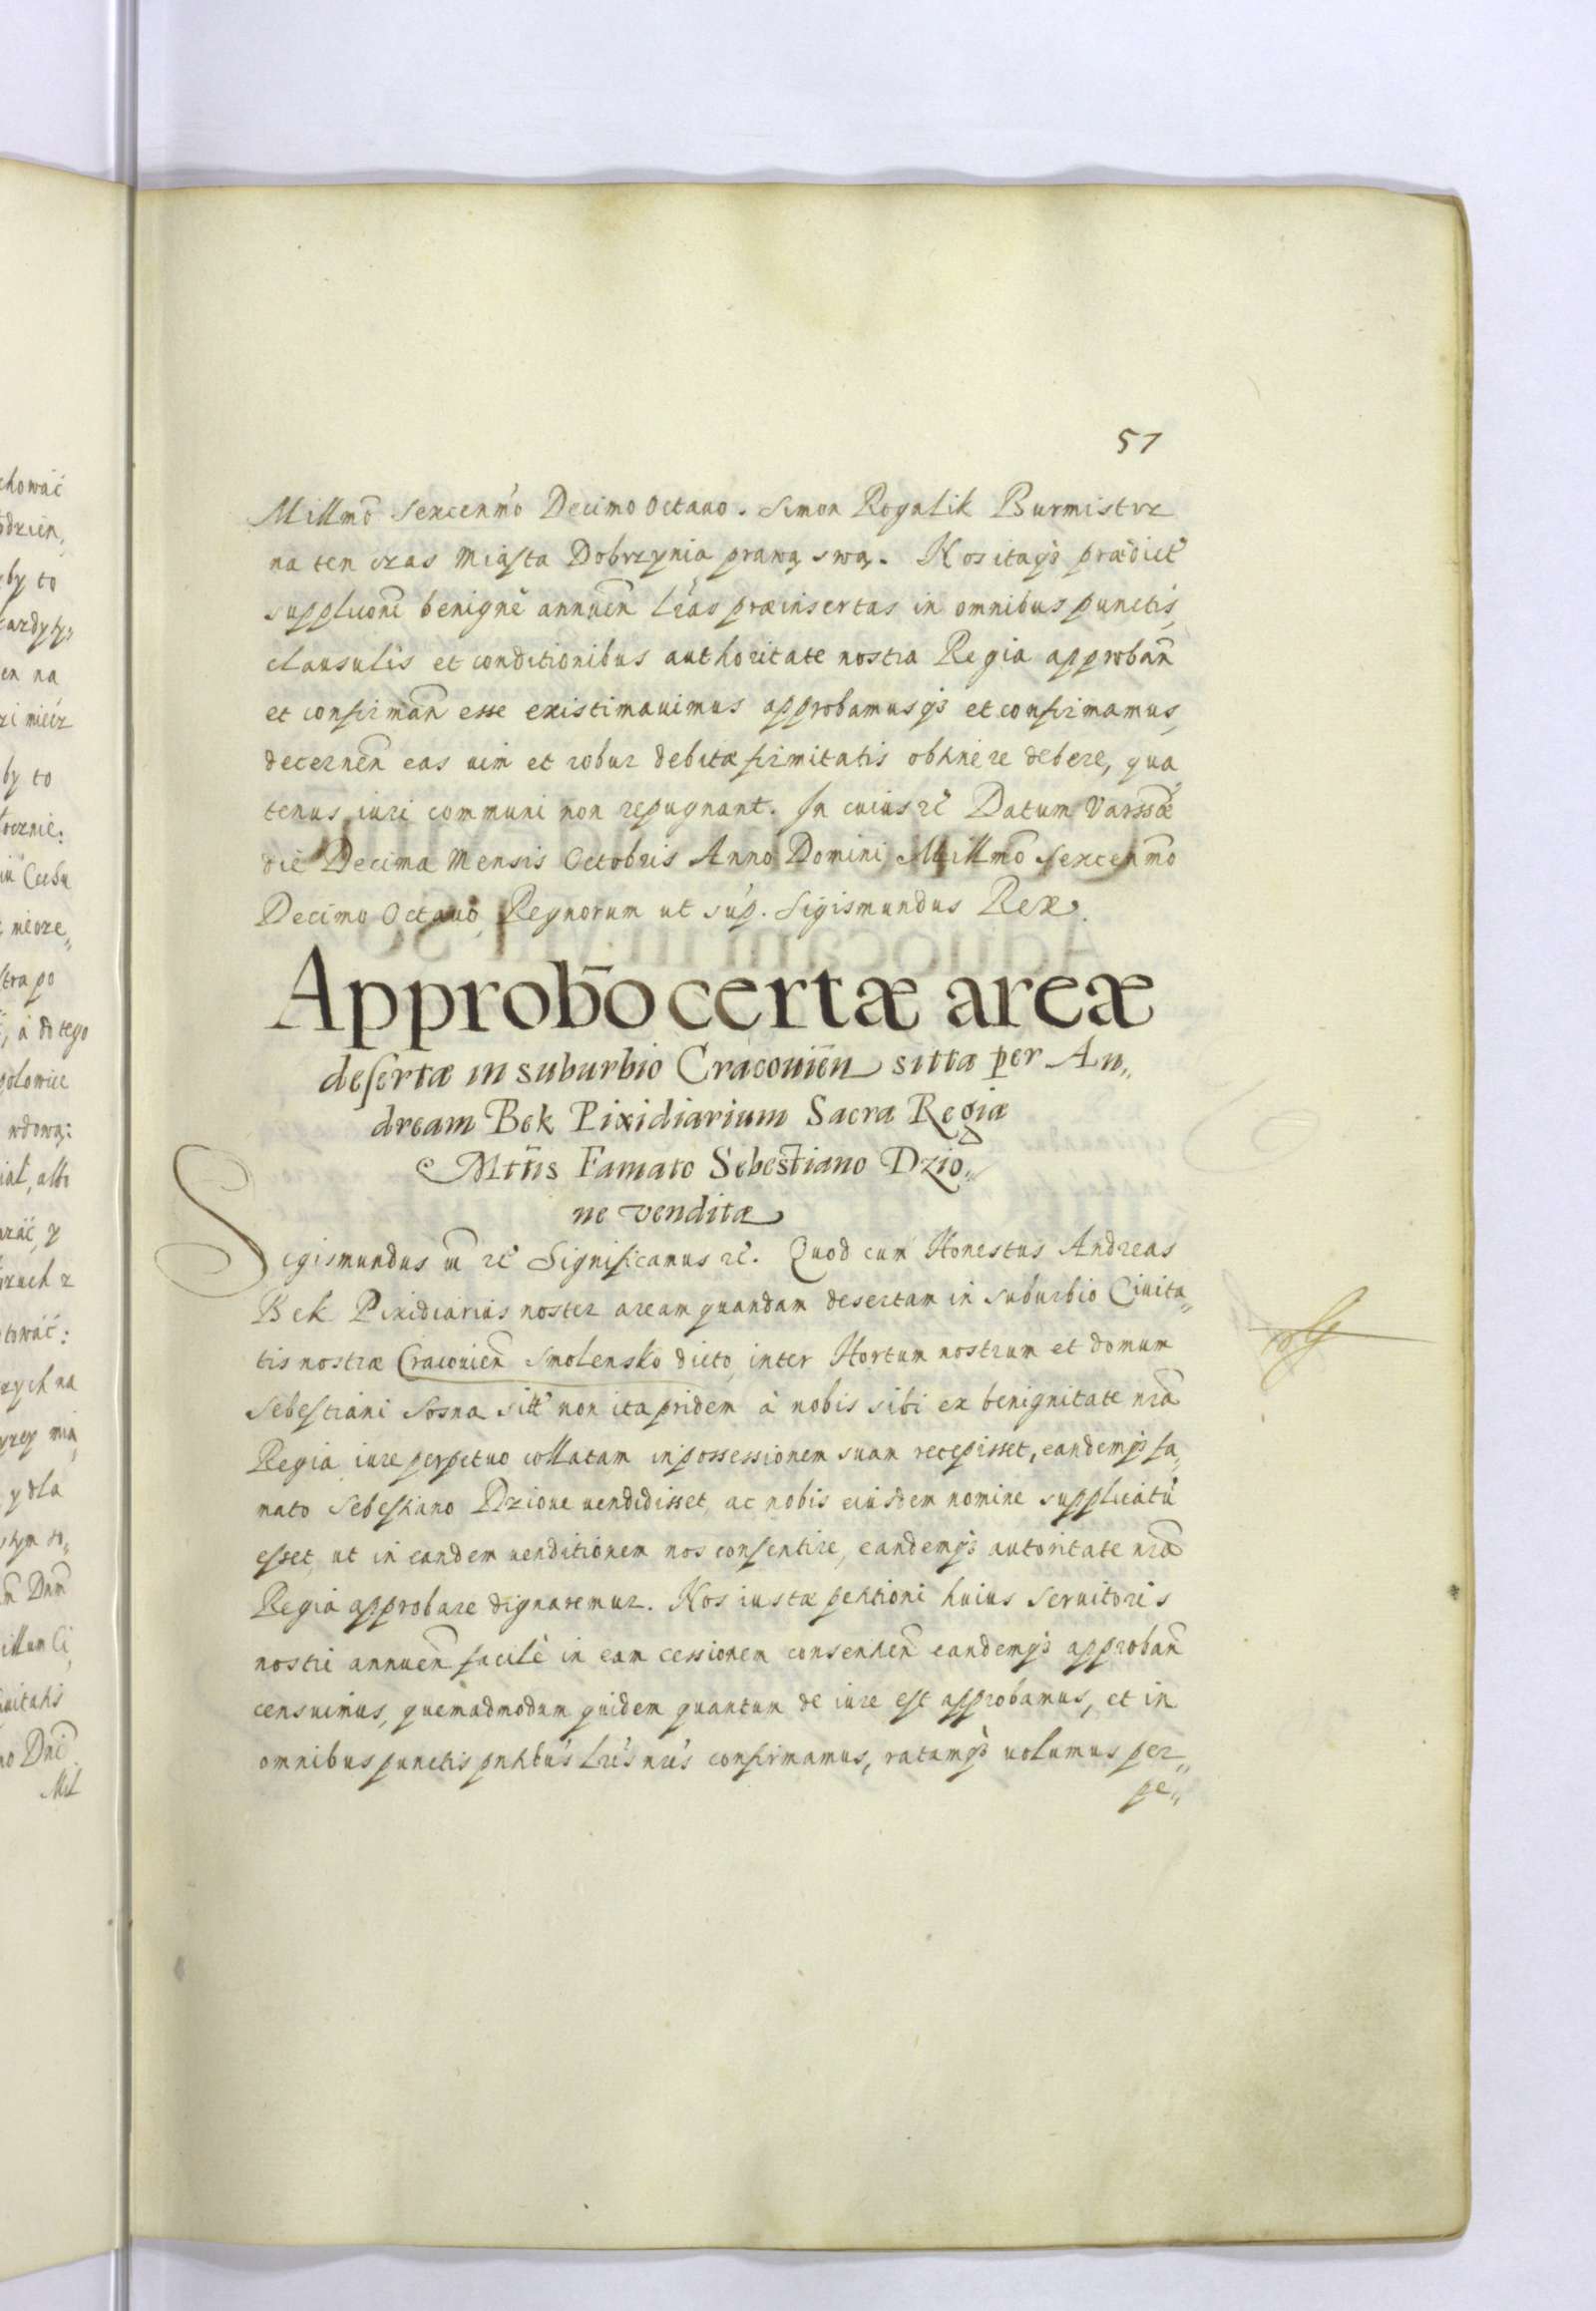 57
Millmõ Sexcenmo Decimo Octauo. Simon Rogalik Burmistrz
na ten czas Miasta Dobrzynia prawą swą. Nos itaqȝ prædict
suppliconi benignè annuen̄ lr̃as præinsertas in omnibus punctis,
clausulis et conditionibus authoritate nostra Regia approban̄
et confirman̄ esse existimauimus approbamusqȝ et confirmamus,
decernen̄ eas uim et robur debitæ firmitatis obtinere debere, qua
tenus iuri communi non repugnant. In cuius rẽ Datum Varssæ
die Decima Mensis Octobris Anno Domini Millmõ Sexcenmõ
Decimo Octauo, Regnorum ut sup. Sigismundus Rex.
Approbõ certæ areæ
desertæ in suburbio Cracouien̄ sittæ per An„
dream Bek Pixidiarium Sacræ Regiæ
Mttis Famato Sebestiano Dzio„
ne venditæ
Sigismundus III rẽ Significamus rẽ. Quod cum Honestus Andreas
Bek Pixidiarius noster aream quandam desertam in suburbio Ciuita„
tis nostræ Cracouien̄ Smolensko dicto, inter Hortum nostrum et domum
Sebestiani Sosna sitt non ita pridem à nobis sibi ex benignitate nrã
Regia iure perpetuo collatam in possessionem suam recepisset, eandemqȝ fa„
mato Sebestiano Dzione uendidisset, ac nobis eiusdem nomine supplicatũ
esset, ut in eandem uenditionem nos consentire, eandemqȝ autoritate nrã
Regia approbare dignaremur. Nos iustæ petitioni huius Seruitoris
nostri annuen̄ facilè in eam cessionem consentien̄ eandemqȝ approban̄
censuimus, quemadmodum quidem quantum de iure est approbamus, et in
omnibus punctis pñtibus lris nris confirmamus, ratamqȝ uolumus per„
pe„